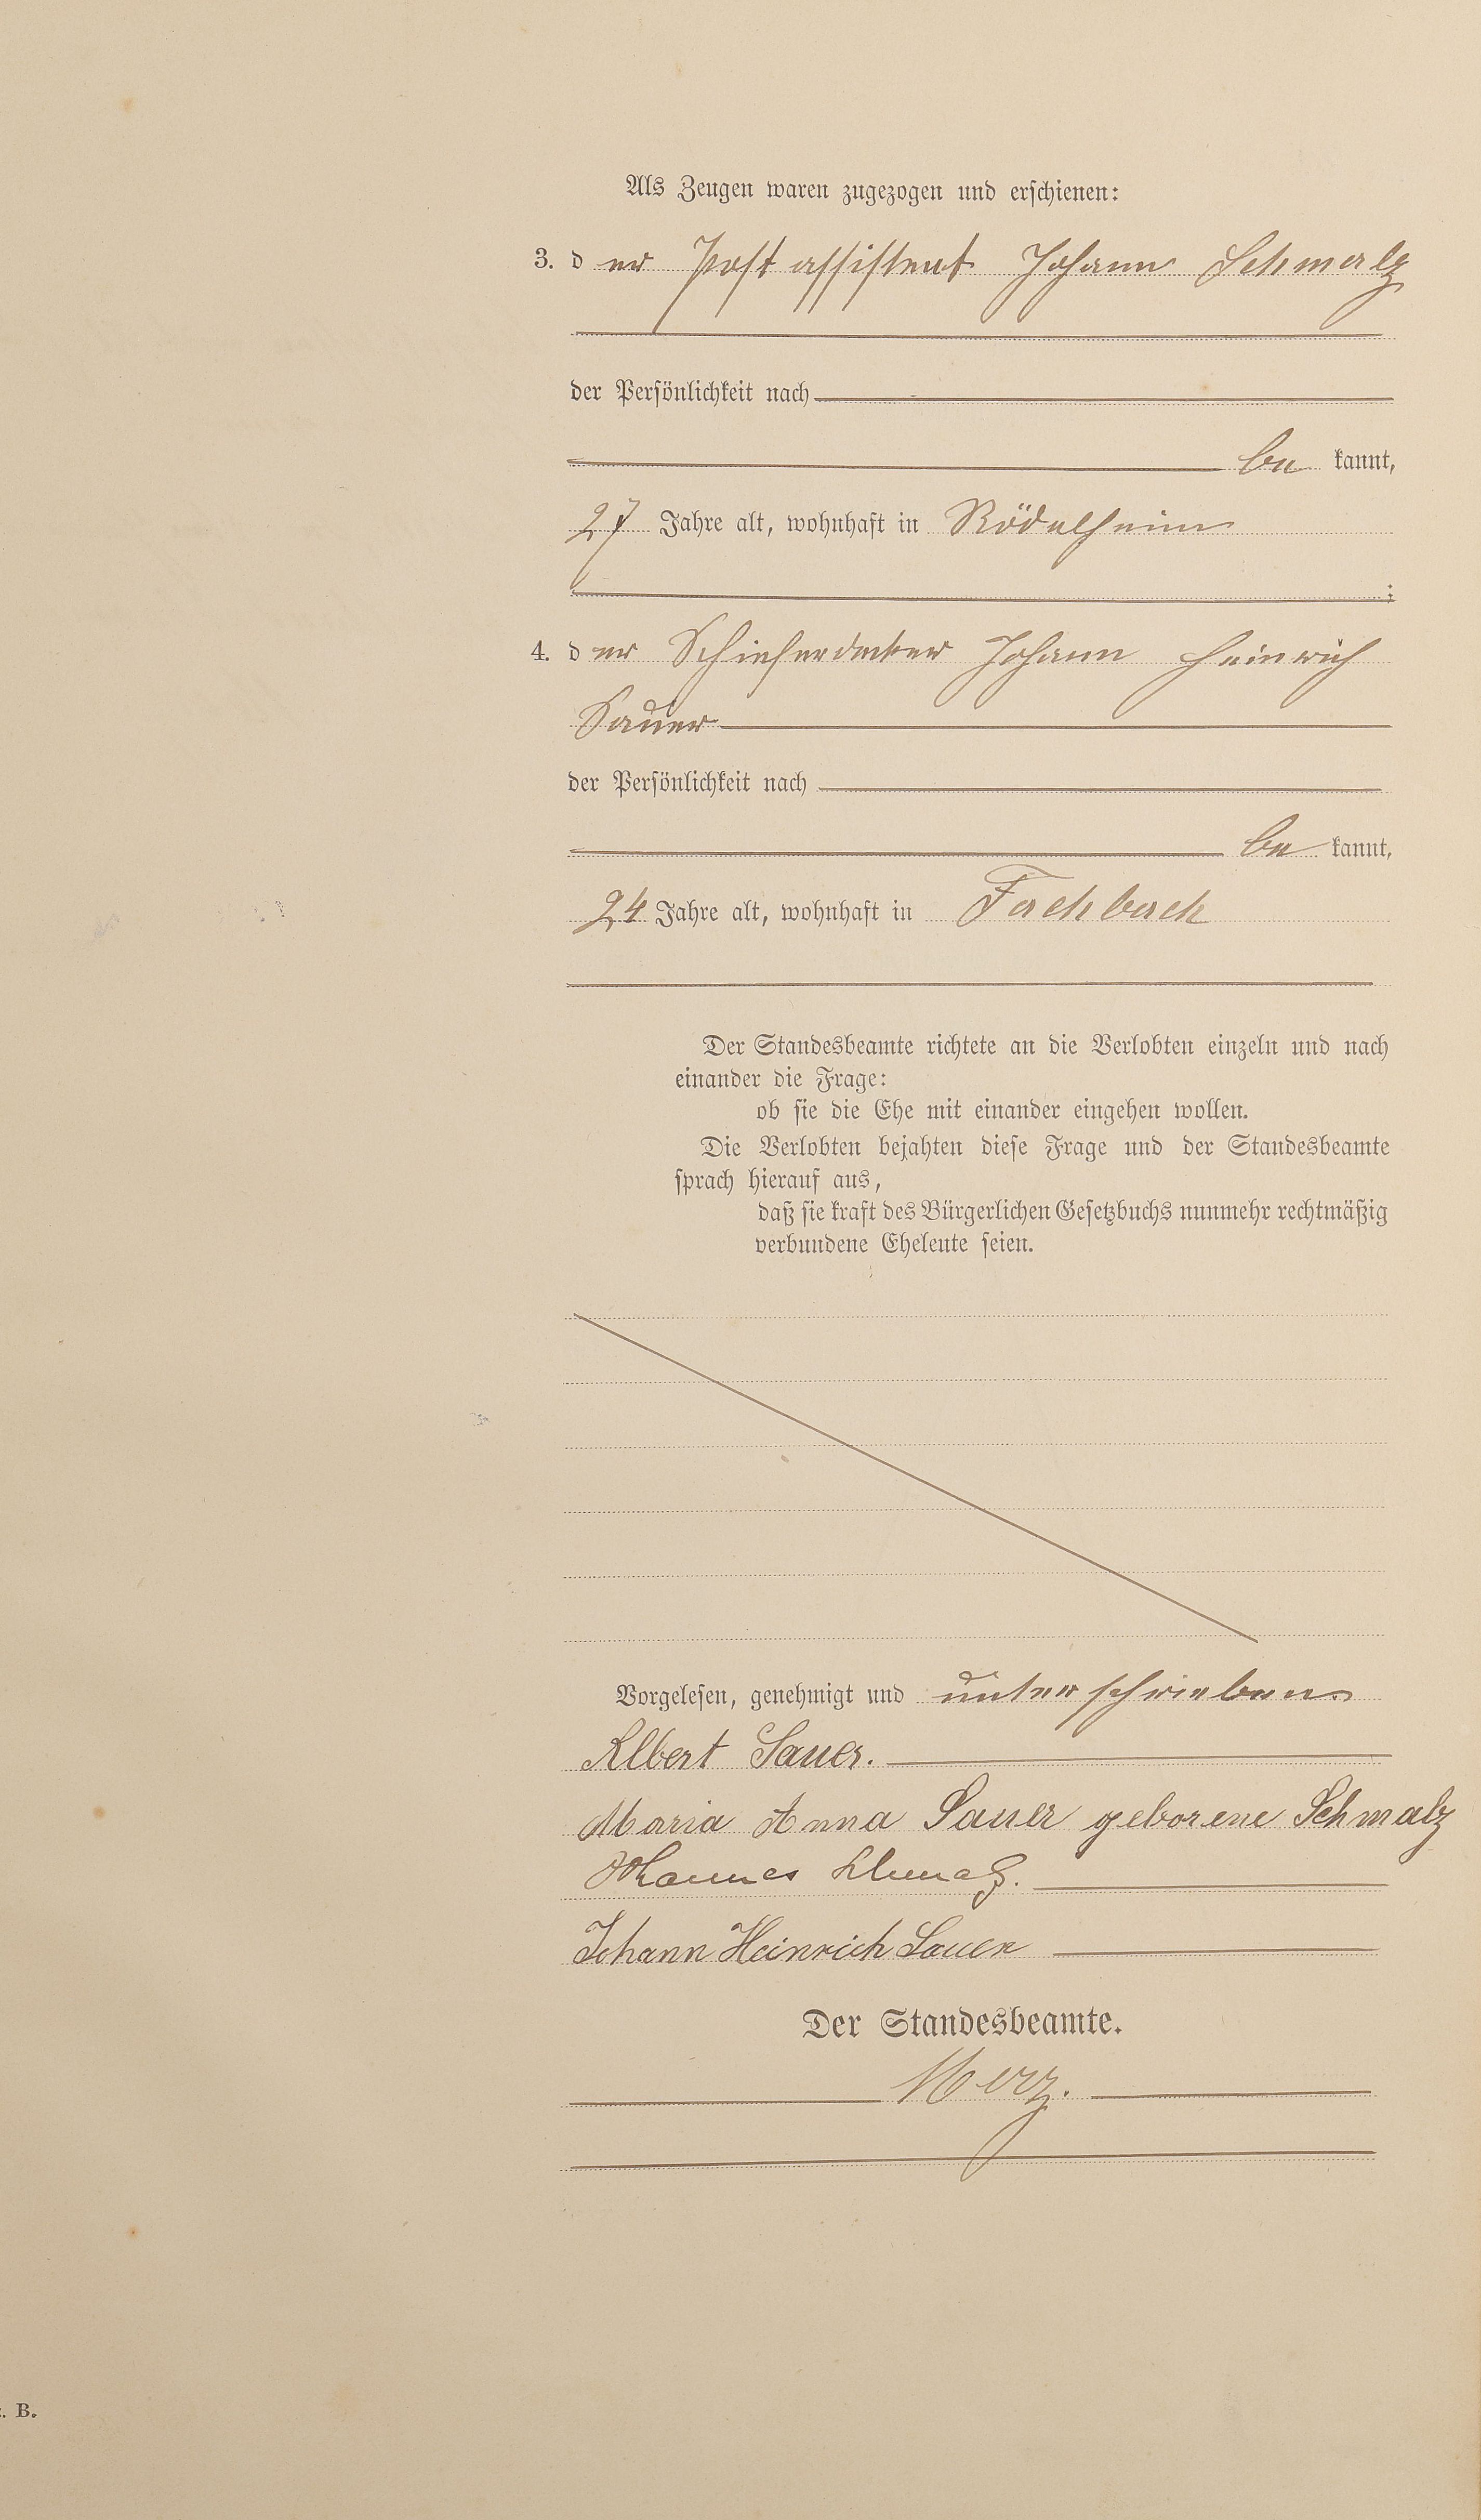 Als Zeugen waren zugezogen und erschienen:
3. der Postassistent Johann Schmalz
der Persönlichkeit nach
be kannt,
27 Jahre alt, wohnhaft in Rödelheim
;
4. der Schieferdecker Johann Heinrich
Sauer
der Persönlichkeit nach
be kannt,
24 Jahre alt, wohnhaft in Fachbach
Der Standesbeamte richtete an die Verlobten einzeln und nach
einander die Frage:
ob sie die Ehe mit einander eingehen wollen.
Die Verlobten bejahten diese Frage und der Standesbeamte
sprach hierauf aus,
daß sie kraft des Bürgerlichen Gesetzbuchs nunmehr rechtmäßig
verbundene Eheleute seien.
Vorgelesen, genehmigt und unterschrieben
Albert Sauer.
Maria Anna Sauer geborene Schmalz
Johannes Schmalz.
Johann Heinrich Sauer
Der Standesbeamte.
Merz.
. B.